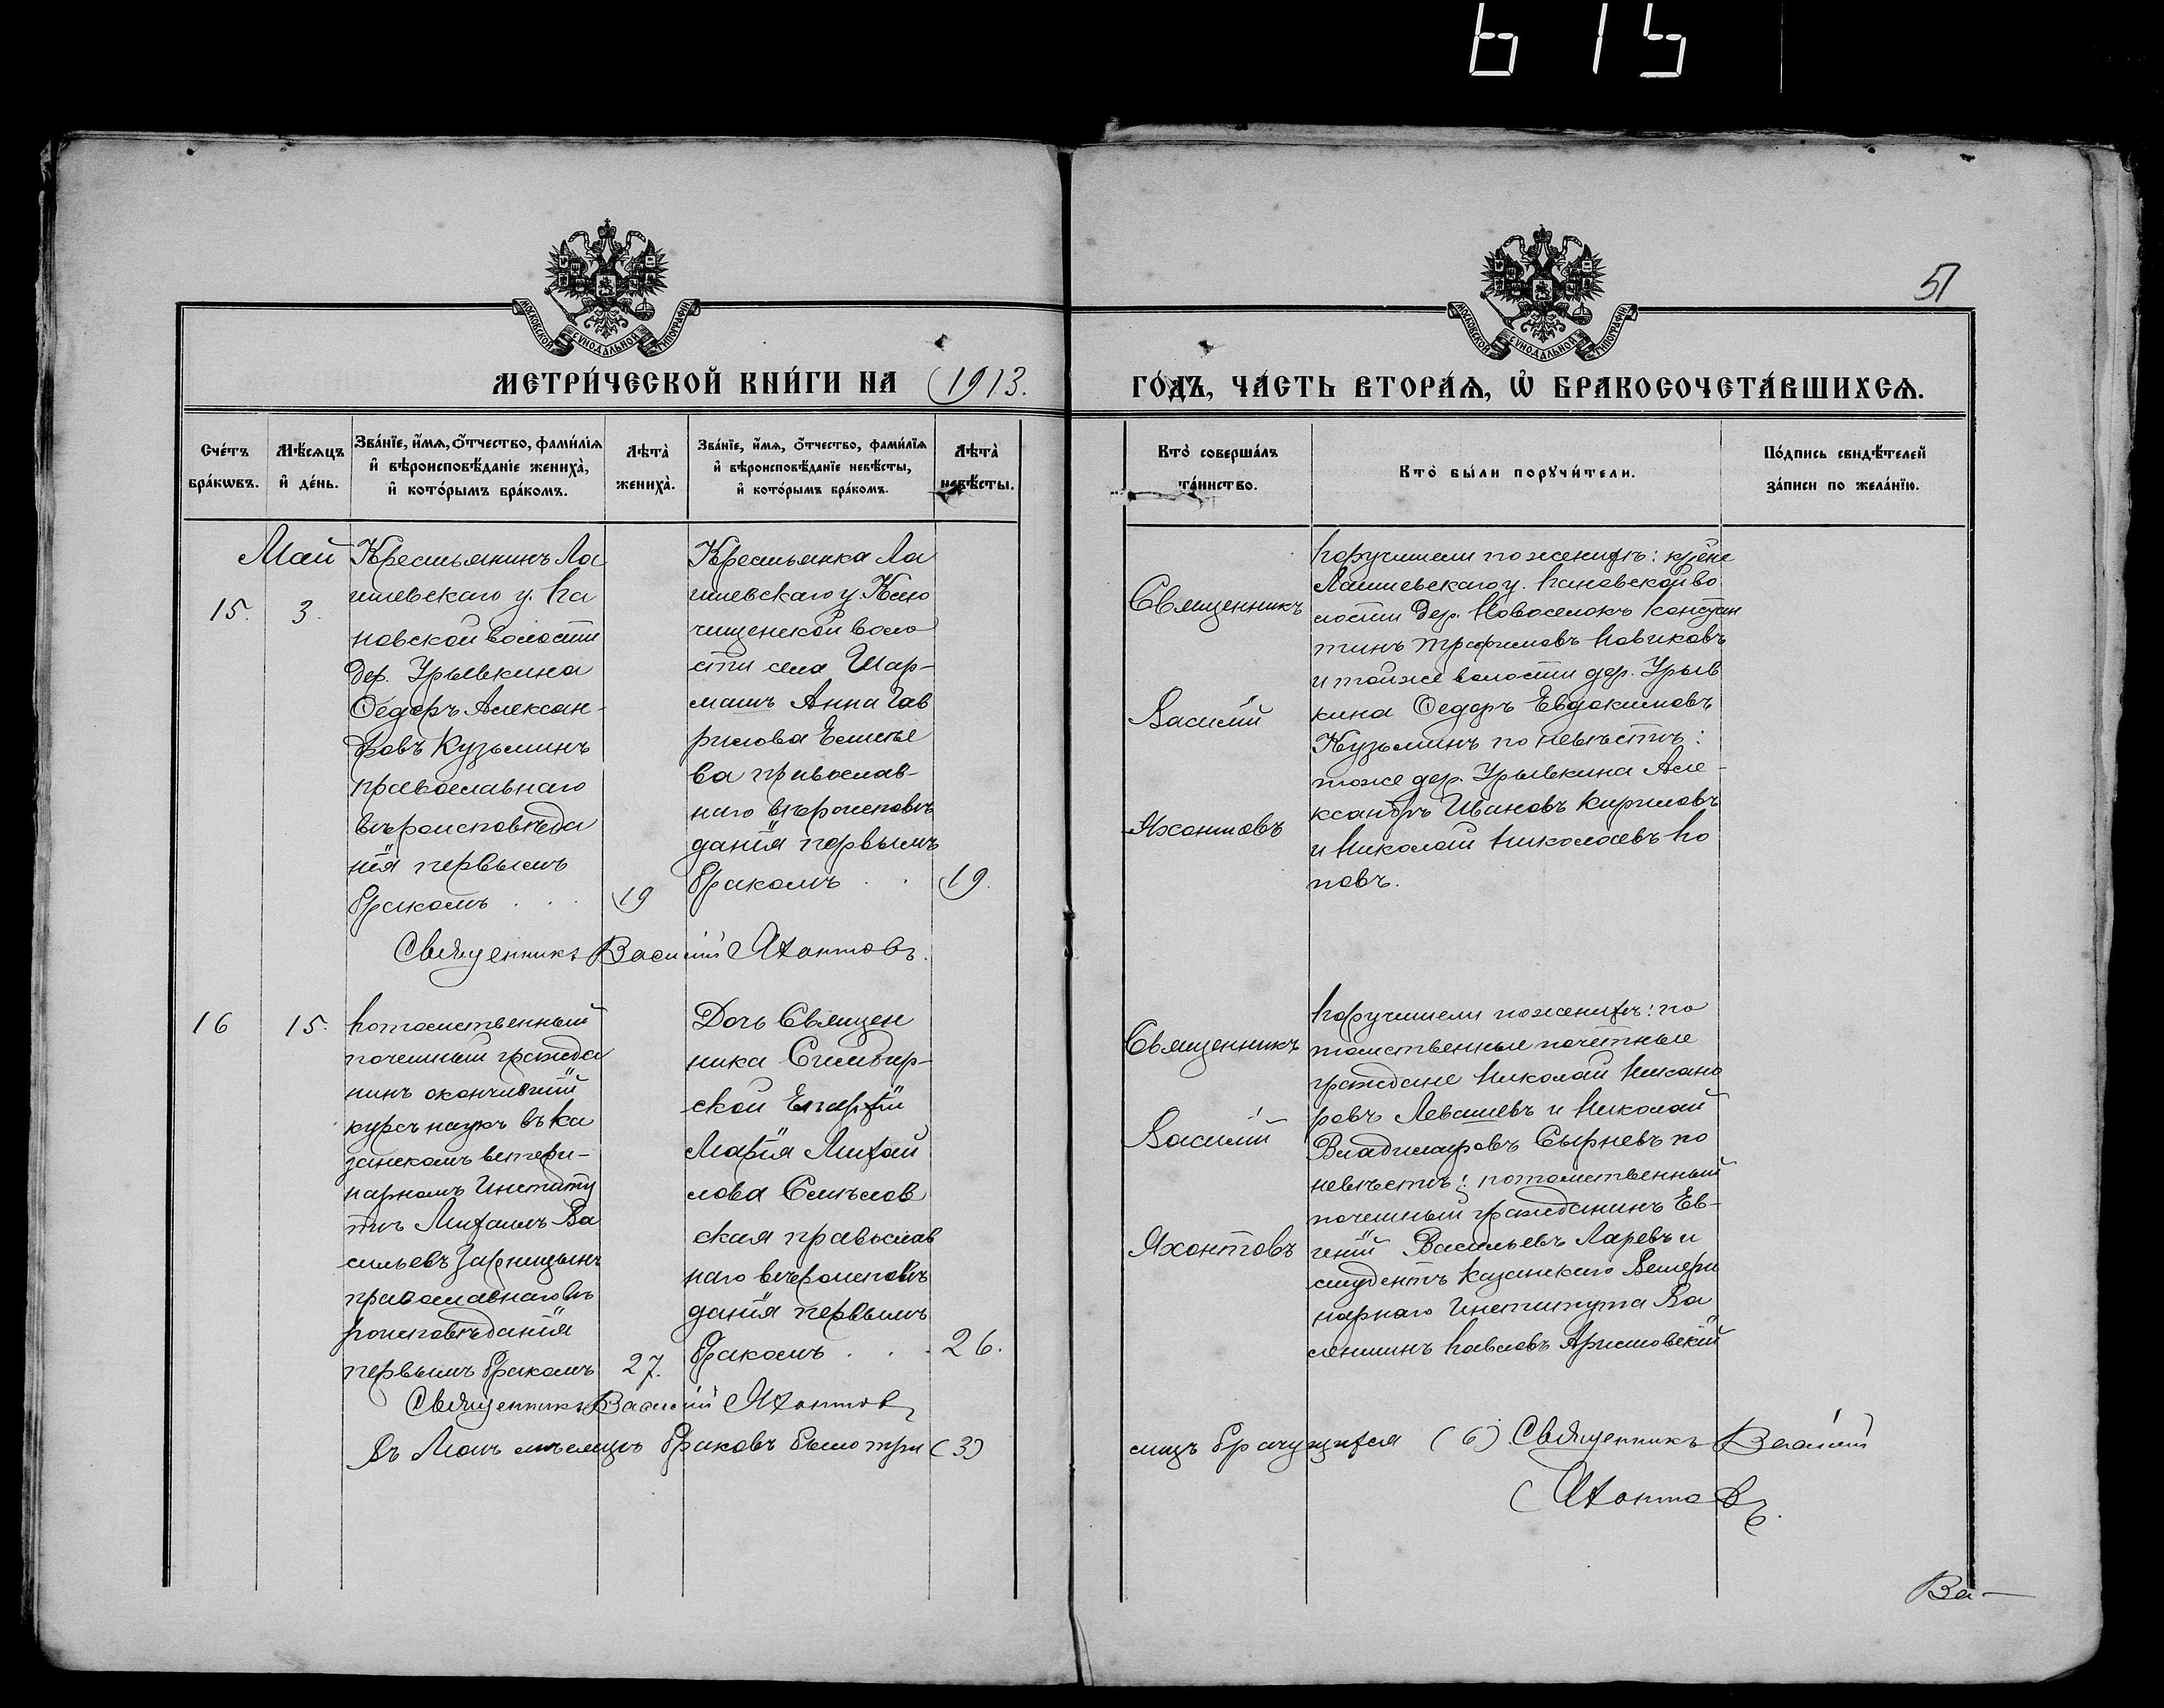 615
51
МОСКОВСКОЙ СѴНОДАЛЬНОЙ ТИПОГРАФІИ
МОСКОВСКОЙ СѴНОДАЛЬНОЙ ТИПОГРАФІИ
МЕТРИ́ЧЕСКОЙ КНИ́ГИ НА 1913.
ГО́ДЪ, ЧА́СТЬ ВТОРА́Ѧ, Ѡ҆ БРАКОСОЧЕТА́ВШИХСѦ.
Сче́тъ бра́кѡвъ.
Мѣ́сѧцъ и҆ де́нь.
Зва́нїе, и҆́мѧ, ѻ҆́тчество, фами́лїѧ и҆ вѣроисповѣ́данїе жениха̀, и҆ кото́рымъ бра́комъ.
Лѣта̀ жениха̀.
Зва́нїе, и҆́мѧ, ѻ҆́тчество, фами́лїѧ и҆ вѣроисповѣ́данїе невѣ́сты, и҆ кото́рымъ бра́комъ.
Лѣта̀ невѣ́сты.
Кто̀ соверша́лъ та́инство.
Кто̀ бы́ли порꙋчи́тели.
По́дпись свидѣ́телей за́писи по жела́нїю.
Май
15. 3.
Крестьянинъ Ла
ишевскаго у. Па
новской волости
дер. Урывкина
Ѳедоръ Алексан-
дровъ Кузьминъ
православнаго
вѣроисповѣда
нія первымъ
бракомъ . . .
19
Крестьянка Ла
ишевскаго у. Клю
чищенской воло
сти села Шар-
машъ Анна Гав
рилова Емелье
ва православ-
наго вѣроисповѣ
данія первымъ
бракомъ . .
19.
Священникъ
Василій
Яхонтовъ
Поручители по женихѣ: кр-не
Лаишевскаго у. Пановской во
лости дер. Новоселокъ Констан
тинъ Трофимовъ Новиковъ
и той же волости дер. Урыв
кина Ѳедоръ Евдокимовъ
Кузьминъ по невѣстѣ:
тоже дер. Урывкина Але-
ксандръ Ивановъ Кириловъ
и Николай Николаевъ По
повъ.
Священникъ Василій Яхонтовъ.
16 15.
Потомственный
почетный гражда
нинъ окончившій
курсъ наукъ въ Ка
занскомъ ветери-
нарномъ Институ
тѣ Михаилъ Ва
сильевъ Зарницынъ
православнаго вѣ
роисповѣданія
первымъ бракомъ
27.
Дочь Священ
ника Симбир-
ской Епархіи
Марія Михай
лова Смѣлов
ская православ
наго вѣроисповѣ
данія первымъ
бракомъ . . .
26.
Священникъ
Василій
Яхонтовъ
Поручители по женихѣ: по
томственные почетные
граждане Николай Никано
ровъ Левашевъ и Николай
Владимировъ Сырневъ по
невѣстѣ: потомственный
почетный гражданинъ Ев-
геній Васильевъ Ларевъ и
студентъ Казанскаго Ветери
нарнаго Института Ва
лентинъ Павловъ Аристовскій
Священникъ Василій Яхонтовъ
Въ Маѣ мѣсяцѣ браковъ было три (3)
лицъ брачущихся (6) Священникъ Василій
Яхонтовъ.
Ва-